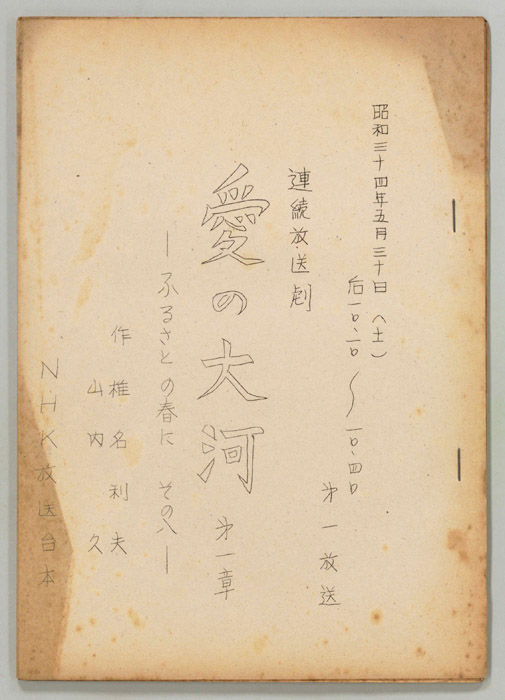 昭和三十四年五月三十日(土)
后一〇、一〇~一〇、四〇
第一放送
連続放送劇
愛の大河 第一章
―ふるさとの春に その八―
作 椎名利夫
山内 久
NHK放送台本